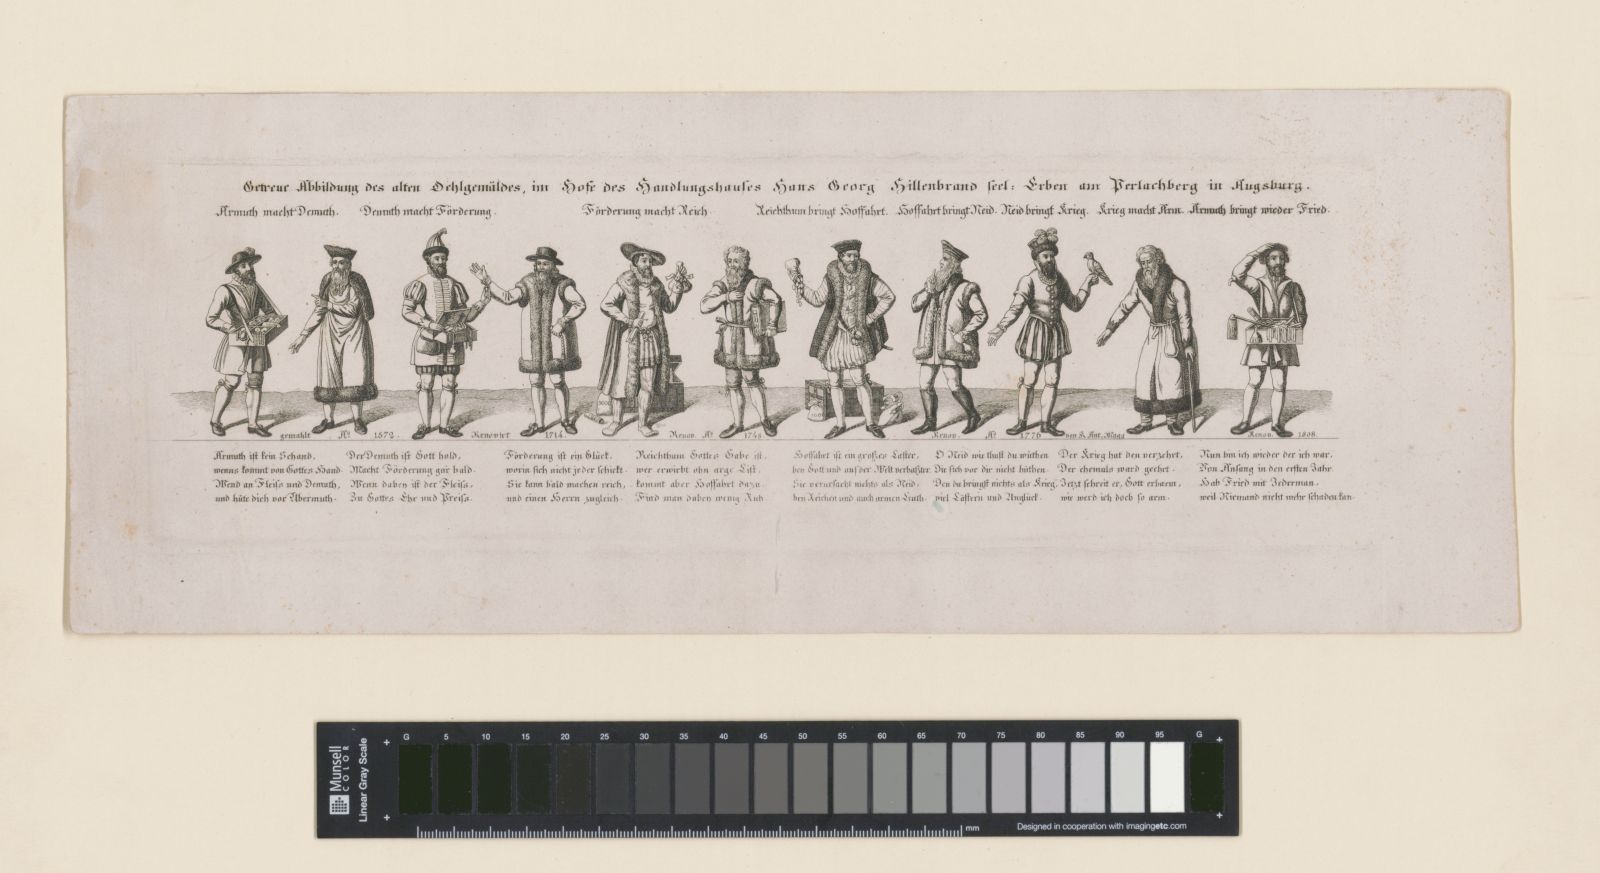 Getreue Abbildung des alten Oehlgemäldes, im Hofe des Handlungshauses Hans Georg Hillenbrand seel: Erben am Perlachberg in Augsburg.
Armuth macht Demuth. Demuth macht Förderung. Förderung macht Reich. Reichthum bringt Hoffahrt. Hoffahrt bringt Neid. Neid bringt Krieg. Krieg macht Arm. Armuth bringt wieder Fried.
gemahlt Aº 1572. Renoviert 1714. Renov. Aº 1748 Renov. Aº 1776 von Renov. 1808.
Armuth ist kein Schand,
wenns kommt von Gottes Hand.
Wend an Fleiss und Demuth,
und hüte dich vor Übermuth.
Der Demuth ist Gott hold,
Macht Förderung gar bald.
Wenn dabey ist der Fleiss.
Zu Gottes Ehr und Preiss.
Förderung ist ein Glück.
worin sich nicht jeder schickt.
Sie kann bald machen reich,
und einen Herrn zugleich.
Reichthum Gottes Gabe ist.
wer erwirbt ohn arge List.
kommt aber Hoffahrt dazu.
Find man dabey wenig Ruh.
Hoffahrt ist ein großes Laster.
bey Gott und auf der Welt verhaßter.
Sie verursacht nichts als Neid.
bey Reichen und auch armen Leuth.
O Neid wie thust du wüthen
Die sich vor dir nicht hüthen.
Den du bringst nichts als Krieg.
viel Lästern und Unglück.
Der Krieg hat den verzehrt.
Der ehemals ward geehrt.
Jetzt schreit er, Gott erbarm,
wie werd ich doch so arm.
Nun bin ich wieder der ich war.
Von Anfang in den ersten Jahr.
Hab Fried mit Jederman.
weil Niemand nicht mehr schaden kan.
Munsell
COLOR
Linear Gray Scale
G 5 10 15 20 25 30 35 40 45 50 55 60 65 70 75 80 85 90 95 G
mm
Designed in cooperation with imagingetc.com